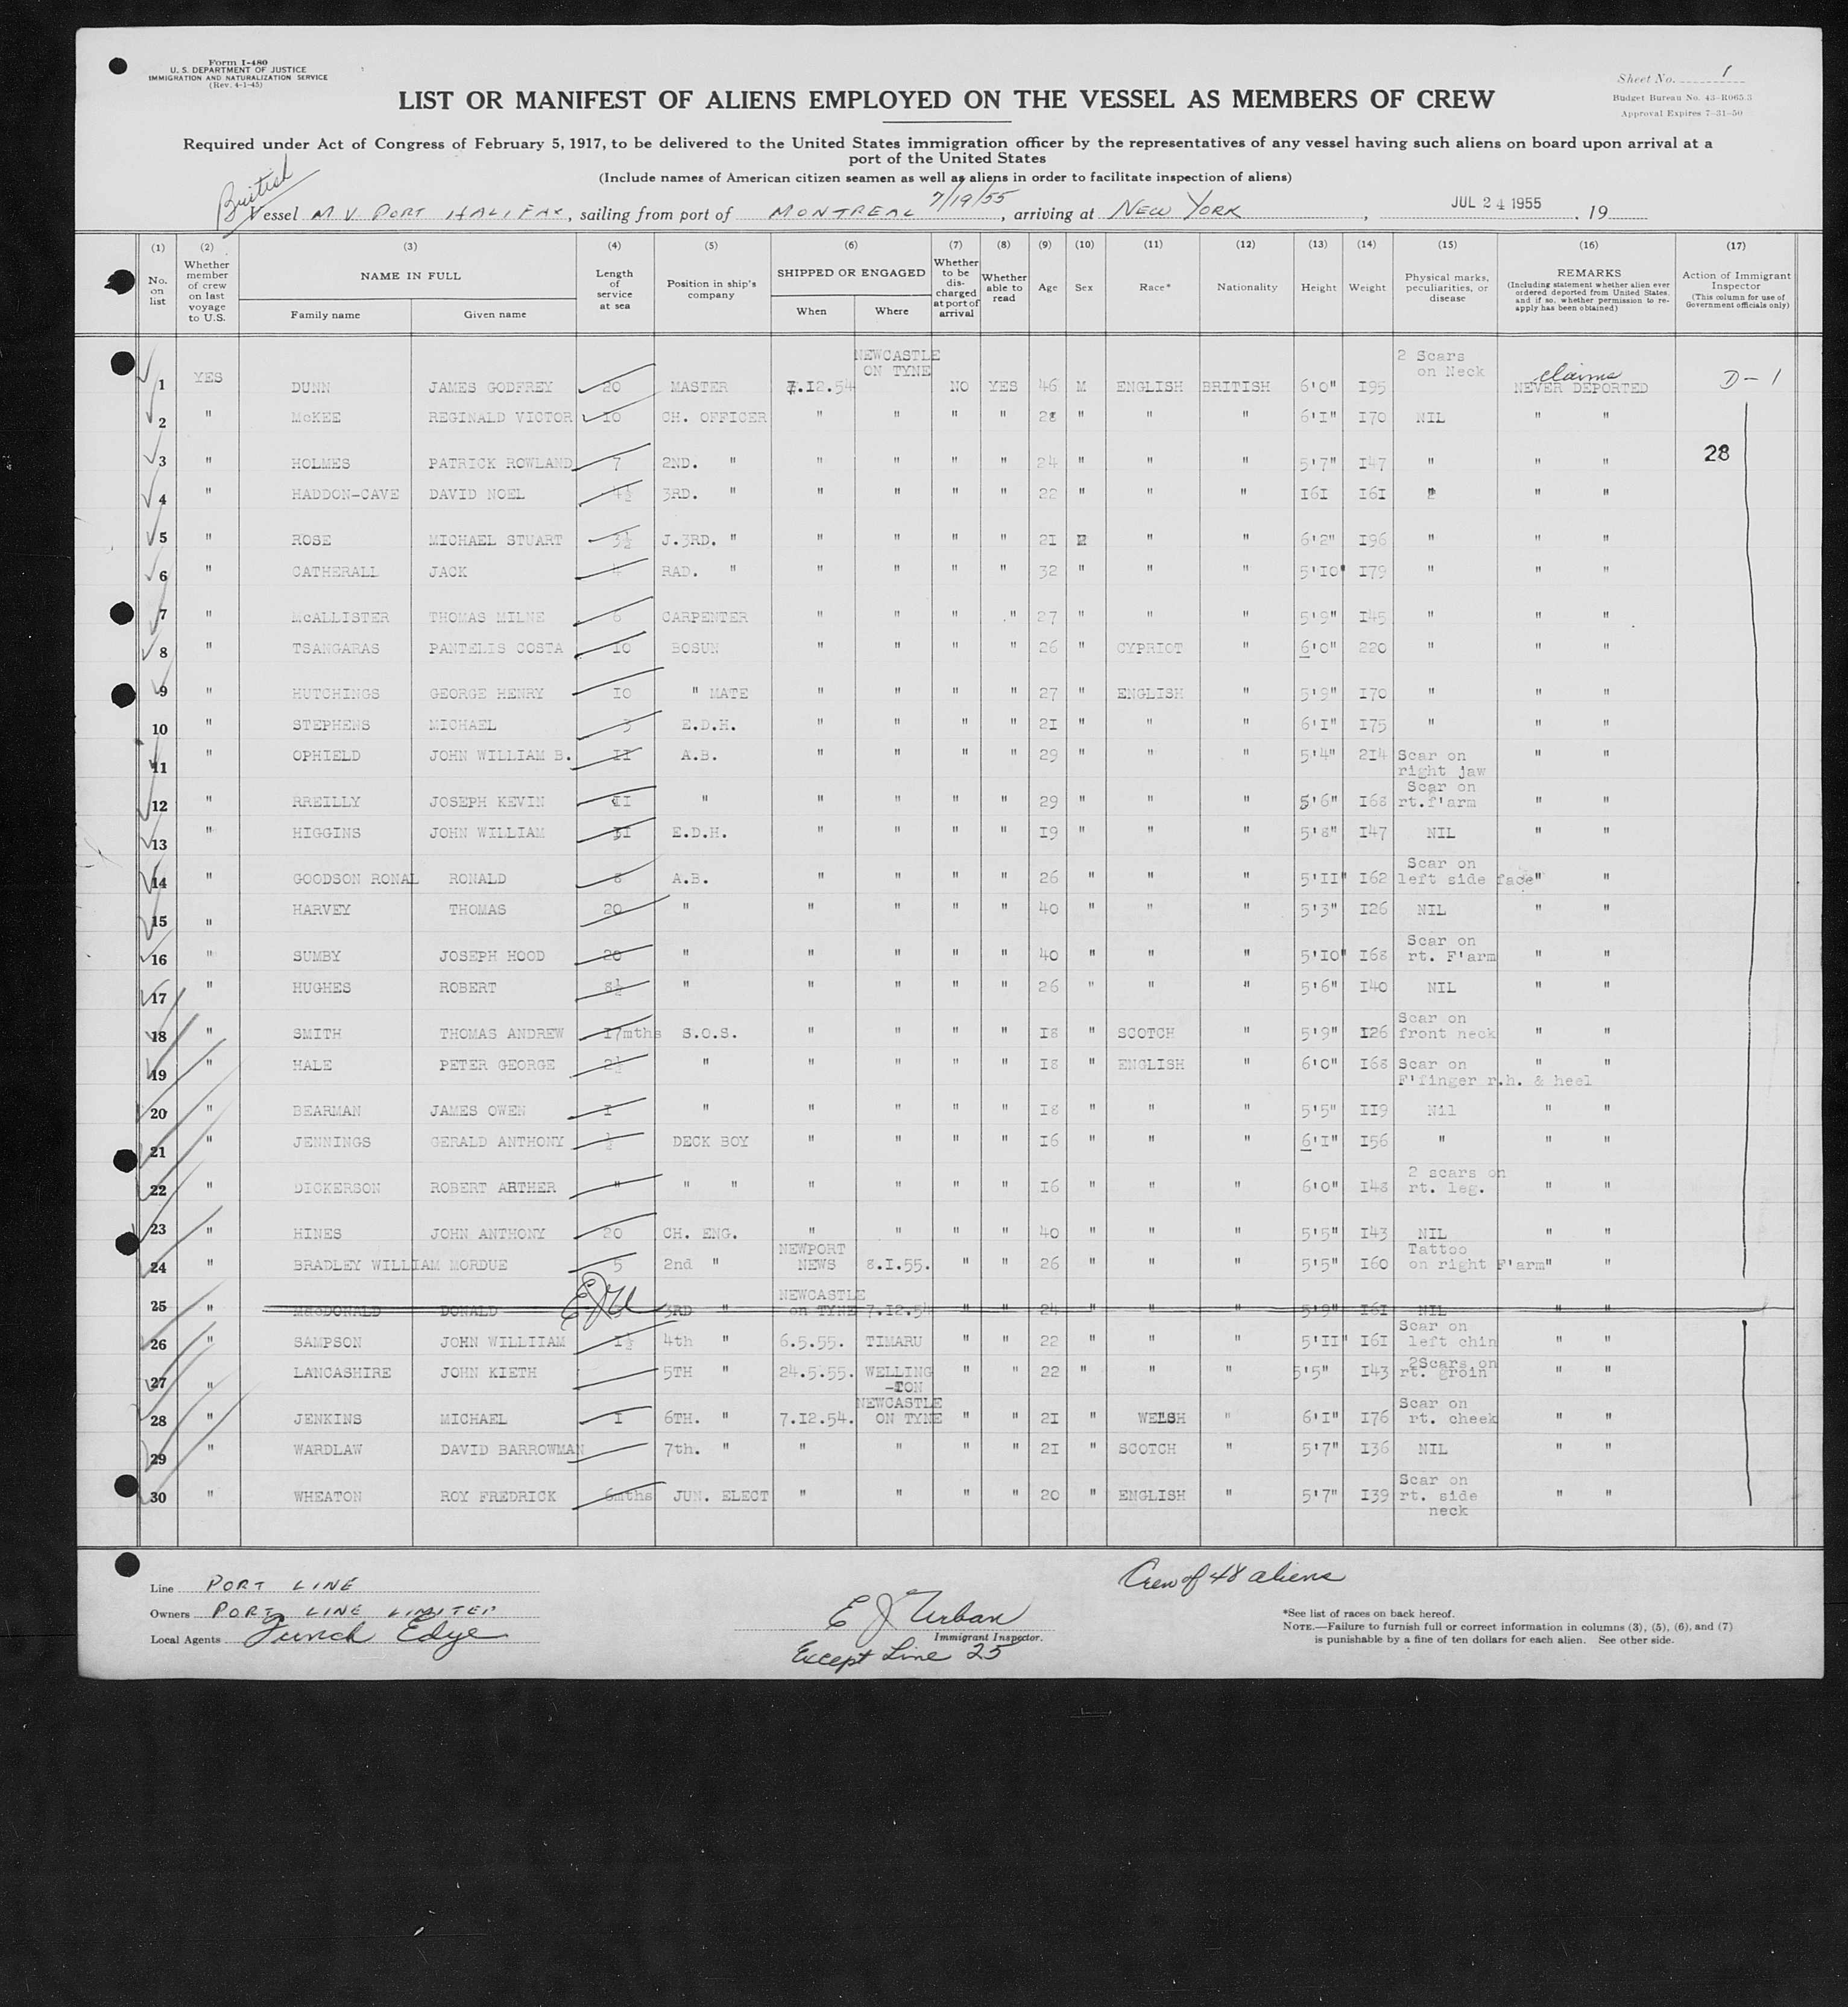 Form I-480
U. S. DEPARTMENT OF JUSTICE
IMMIGRATION AND NATURALIZATION SERVICE
(Rev. 4-1-45)
Sheet No. 1
Budget Bureau No. 43-R065.3
Approval Expires 7-31-50
LIST OR MANIFEST OF ALIENS EMPLOYED ON THE VESSEL AS MEMBERS OF CREW
Required under Act of Congress of February 5, 1917, to be delivered to the United States immigration officer by the representatives of any vessel having such aliens on board upon arrival at a
port of the United States
(Include names of American citizen seamen as well as aliens in order to facilitate inspection of aliens)
British
Vessel M V PORT HALIFAX, sailing from port of MONTREAL 7/19/55, arriving at NEW YORK, JUL 24 1955, 19
(1) (2) (3) (4) (5) (6) (7) (8) (9) (10) (11) (12) (13) (14) (15) (16) (17)
No. on list
Whether member of crew on last voyage to U.S.
NAME IN FULL
Family name Given name
Length of service at sea
Position in ship's company
SHIPPED OR ENGAGED
When Where
Whether to be discharged at port of arrival
Whether able to read
Age Sex Race* Nationality Height Weight
Physical marks, peculiarities, or disease
REMARKS
(Including statement whether alien ever ordered deported from United States, and if so, whether permission to re-apply has been obtained)
Action of Immigrant Inspector
(This column for use of Government officials only)
1 YES DUNN JAMES GODFREY 20 MASTER 7.12.54 NEWCASTLE ON TYNE NO YES 46 M ENGLISH BRITISH 6'0" 195 2 Scars on Neck claims NEVER DEPORTED D-1
2 " McKEE REGINALD VICTOR 10 CH. OFFICER " " " " 28 " " " 6'1" 170 NIL " "
3 " HOLMES PATRICK ROWLAND 7 2ND. " " " " " 24 " " " 5'7" 147 " " " 28
4 " HADDON-CAVE DAVID NOEL 4½ 3RD. " " " " " 22 " " " 161 161 " " "
5 " ROSE MICHAEL STUART 3½ J.3RD. " " " " " 21 " " 6'2" 196 " " "
6 " CATHERALL JACK 4 RAD. " " " " " 32 " " " 5'10" 179 " " "
7 " McALLISTER THOMAS MILNE 6 CARPENTER " " " " 27 " " " 5'9" 145 " " "
8 " TSANGARAS PANTELIS COSTA 10 BOSUN " " " " 26 " CYPRIOT " 6'0" 220 " " "
9 " HUTCHINGS GEORGE HENRY 10 " MATE " " " " 27 " ENGLISH " 5'9" 170 " " "
10 " STEPHENS MICHAEL 3 E.D.H. " " " " 21 " " " 6'1" 175 " " "
11 " OPHIELD JOHN WILLIAM B. 11 A.B. " " " " 29 " " " 5'4" 214 Scar on right jaw " "
12 " RREILLY JOSEPH KEVIN 11 " " " " " 29 " " " 5'6" 168 Scar on rt.f'arm " "
13 " HIGGINS JOHN WILLIAM E.D.H. " " " " 19 " " " 5'8" 147 NIL " "
14 " GOODSON RONAL RONALD 8 A.B. " " " " 26 " " " 5'11" 162 Scar on left side face" "
15 " HARVEY THOMAS 20 " " " " " 40 " " " 5'3" 126 NIL " "
16 " SUMBY JOSEPH HOOD 20 " " " " " 40 " " " 5'10" 168 Scar on rt. F'arm " "
17 " HUGHES ROBERT 8½ " " " " " 26 " " " 5'6" 140 NIL " "
18 " SMITH THOMAS ANDREW 17mths S.O.S. " " " " 18 " SCOTCH " 5'9" 126 Scar on front neck " "
19 " HALE PETER GEORGE 2½ " " " " " 18 " ENGLISH " 6'0" 168 Scar on F'finger r.h. & heel " "
20 " BEARMAN JAMES OWEN 1 " " " " " 18 " " " 5'5" 119 Nil " "
21 " JENNINGS GERALD ANTHONY ½ DECK BOY " " " " 16 " " " 6'1" 156 " " "
22 " DICKERSON ROBERT ARTHER " " " " " " " 16 " " " 6'0" 148 2 scars on rt. leg. " "
23 " HINES JOHN ANTHONY 20 CH. ENG. " " " " 40 " " " 5'5" 143 NIL " "
24 " BRADLEY WILLIAM MORDUE 5 2nd " NEWPORT NEWS 8.1.55. " " 26 " " " 5'5" 160 Tattoo on right F'arm" "
25 " MacDONALD DONALD EJU 3RD " NEWCASTLE on TYNE 7.12.54 " " 24 " " " 5'9" 161 NIL " "
26 " SAMPSON JOHN WILLIIAM 1½ 4th " 6.5.55. TIMARU " " 22 " " " 5'11" 161 Scar on left chin " "
27 " LANCASHIRE JOHN KIETH 5TH " 24.5.55. WELLING-TON " " 22 " " " 5'5" 143 2Scars on rt. groin " "
28 " JENKINS MICHAEL 1 6TH. " 7.12.54. NEWCASTLE ON TYNE " " 21 " WELSH " 6'1" 176 Scar on rt. cheek " "
29 " WARDLAW DAVID BARROWMAN 7th. " " " " " 21 " SCOTCH " 5'7" 136 NIL " "
30 " WHEATON ROY FREDRICK 6mths JUN. ELECT " " " " 20 " ENGLISH " 5'7" 139 Scar on rt. side neck " "
Crew of 48 aliens
Line PORT LINE
Owners PORT LINE LIMITED
Local Agents Funch Edye
E J Urban
Immigrant Inspector.
Except Line 25
*See list of races on back hereof.
NOTE.—Failure to furnish full or correct information in columns (3), (5), (6), and (7)
is punishable by a fine of ten dollars for each alien. See other side.